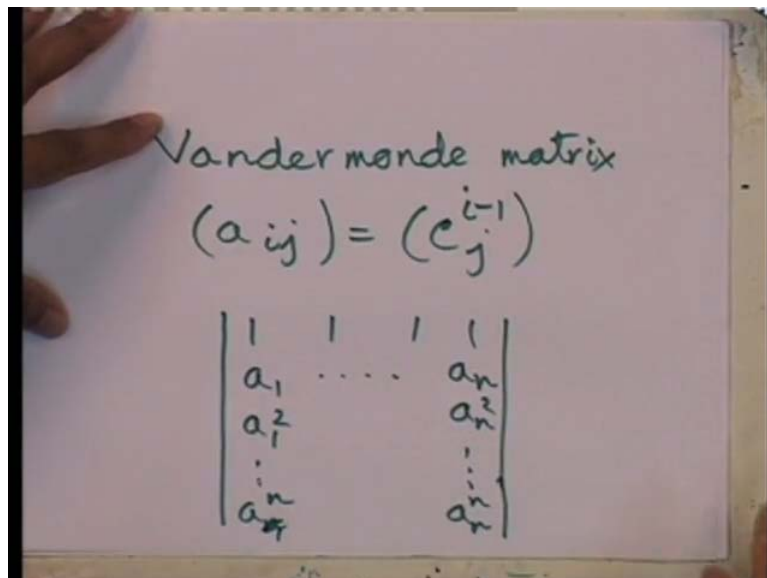 Vandermonde matrix
(a_{ij}) = (c_j^{i-1})
| 1 1 1 1 |
| a_1 .... a_n |
| a_1^2 a_n^2 |
| ⋮ ⋮ |
| a_1^n a_n^n |